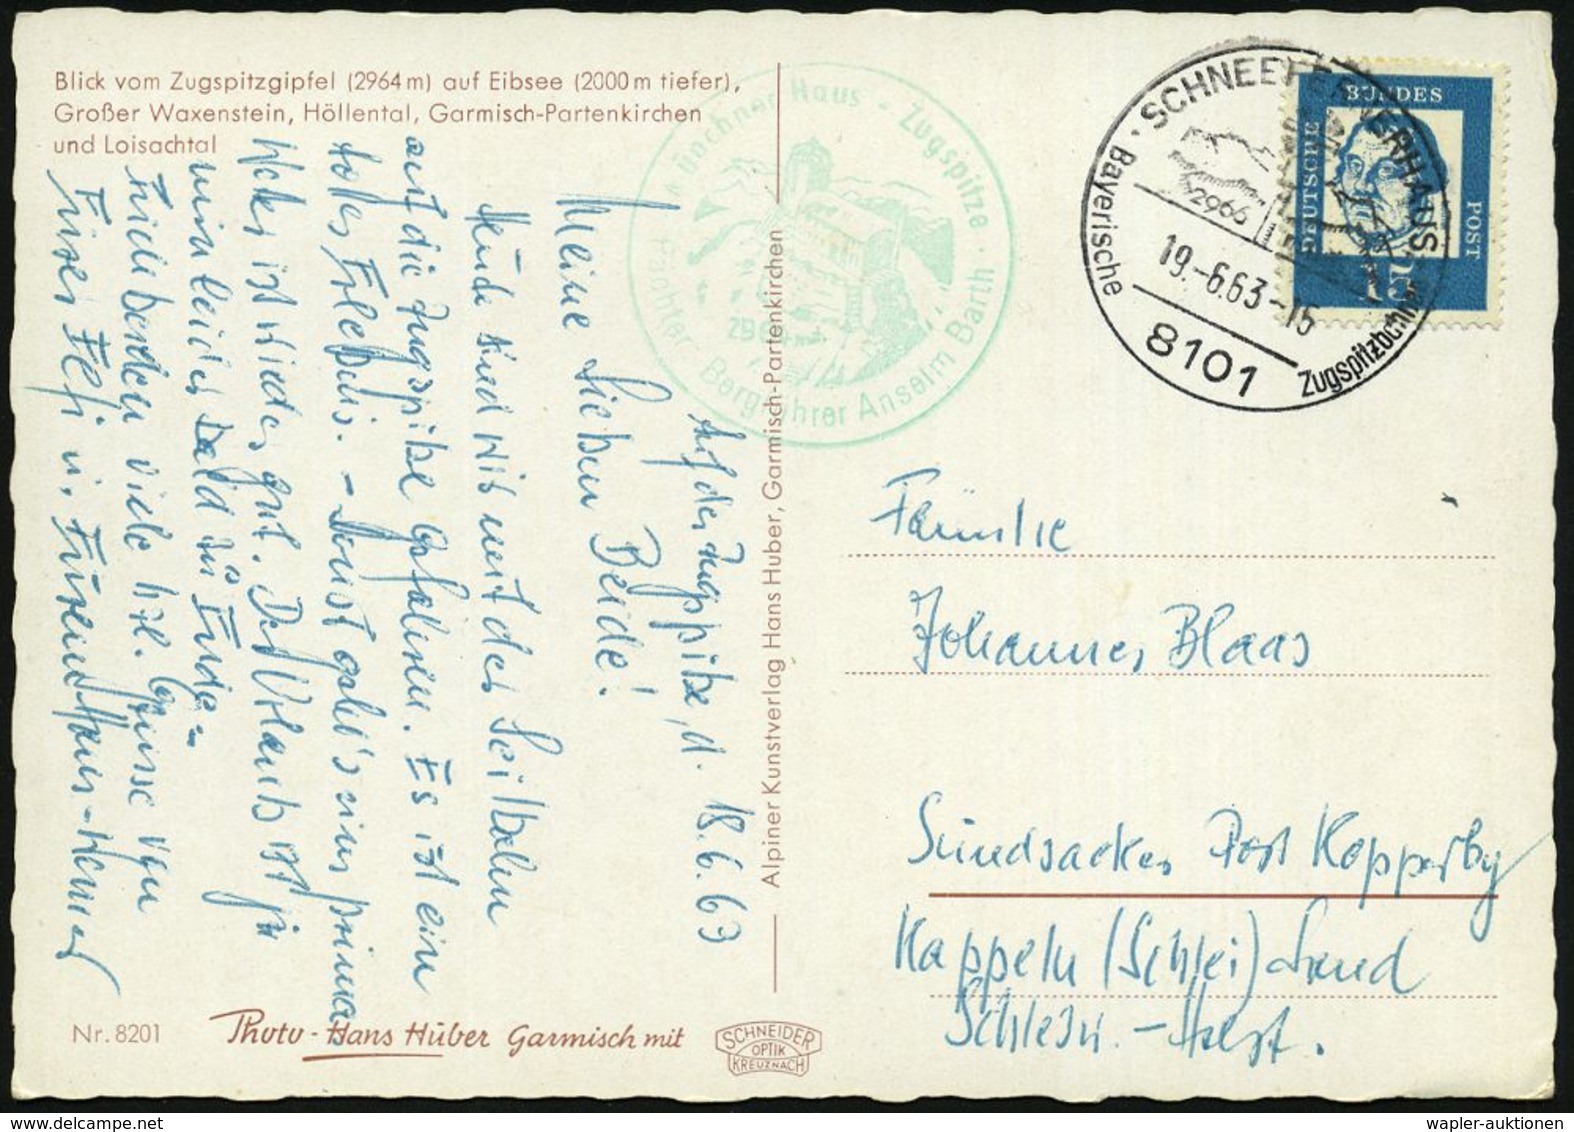 Blick vom Zugspitzgipfel (2964 m) auf Eibsee (2000 m tiefer),
Großer Waxenstein, Höllental, Garmisch-Partenkirchen
und Loisachtal
Münchner Haus - Zugspitze .
Pächter: Bergführer Anselm Barth
Auf der Zugspitze, d. 18.6.63
Meine lieben Beide!
sind wir mit der Seilbahn
auf die Zugspitze gefahren. Es ist ein
tolles Erlebnis. - Sonst geht's uns prima
Wetter ist wieder gut. Der Urlaub ist ja
nun leider bald zu Ende.
Euch beiden viele hzl. Grüsse von
Alpiner Kunstverlag Hans Huber, Garmisch-Partenkirchen
Nr. 8201
Photo - Hans Huber Garmisch mit
SCHNEIDER
OPTIK
KREUZNACH
. SCHNEEFERNERHAUS .
Bayerische Zugspitzbahn
2966
19.-6.63-15
8101
BUNDES
DEUTSCHE
POST
15
Familie
Johannes Blaas
Sundsacker Post Kopperby
Kappeln (Schlei) Land
Schlesw. - Holst.